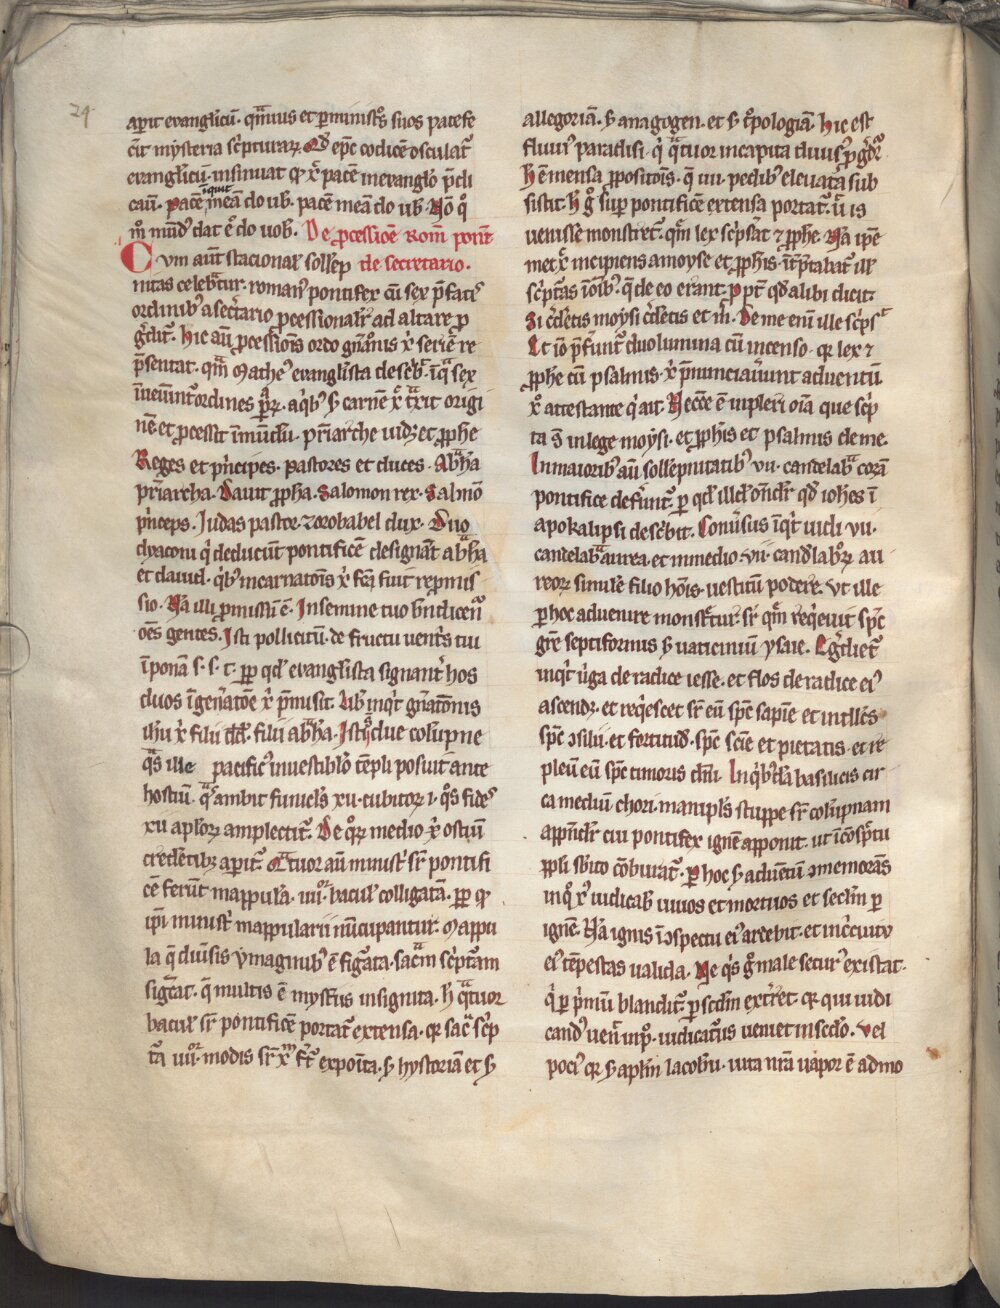 24
aꝑit evanglicũ. qͣmuis et ꝑminist̾os suos patefe
cit mysteria sc̾pturaꝝ. Qd̾ epc̃ codicẽ osculat᷑
evanglicũ. insinuat ꝙ xp̃ pacẽ in evanglo p̾di
caũ. Pacẽ inquit meã do uob̾. pacẽ meã do uob̾. Nõ qͦ
m̊ mũd᷒ dat e᷑ do uob̾. De ꝓcessiõe Rom̃ pont᷑
Cvm aũt stacional̾ sollẽp de secretario.
nitas celebͣtur. roman᷒ pontifex cũ sex p̃fatis᷒
ordinib᷒ a secͬtario ꝓcessionalr̃ ad altare ꝓ
gͬdit᷑. Hic aũ ꝓcessionis ordo gn̾at̃onis xp̃i seriẽ re
p̃sentat. qͣm̃ Mathe᷒ evanglista desc̾b᷑. i qͣ sex
inueniũt᷑ ordines p̃rꝝ. a qͥb᷒ s̾ carnẽ xp̃c tͣxit origi
nẽ et ꝓcessit i mũdũ. pr̃iarche uidꝫ et ꝓphe
Reges et pͥncipes. pastores et duces. Abͣhã
pr̃iarcha. Dauit ꝓpha. Salomon rex. Salmõ
pͥnceps. Judas pastor. zorobabel dux. Duo
dyaconi qͥ deducũt pontificẽ designãt abͣhã
et dauid. qͥb᷒ incarnatoĩs xp̃i fc̃a fuit repmis
sio. Nã illi ꝓmissũ ẽ. In semine tuo bn̾dicen᷑
oẽs gentes. Isti pollicitũ. de fructu ventͥs tui
iponã s. s. t. ꝓp qd̾ evanglista signant᷑ hos
duos i gen̾atõe xp̃i p̾misit. Lib̾ inqͥt gn̾atõnis
ihũ xp̃i filii dd̾. filii abͣhã. Isti sͣ due colũpne
qͣs ille pacific᷒ in uestib̾lo tẽpli posuit ante
hostiũ. qͣs ambit funicl̾s xii. cubitoꝝ i. qͦs fides᷒
xii apl̾oꝝ amplectit᷑. De qͦꝝ medio xp̃c ostiũ
credẽtibꝫ aꝑit᷑. Qͣtuor aũ ministͥ sr̾ pontifi
cẽ ferũt mappulã. iiiior bacul̾ colligatã. ꝓp ꝙ
ipi ministͥ mappularii nũcupantur. Mappu
la q̃ diu̾sis ymaginib᷒ ẽ figͧata. sacͣm sc̾ptᷓam
sigͣfcat. q̃ multis ẽ myst̾iis insignita. H̾ qͣtuor
bacul̾ sr̾ pontificẽ portat᷑ extensa. ꝙ sacͣ sc̾p
tͣ iiiior modis sr̾ xp̃m fr̃t᷑ exponita. s̾ hystoriã et s̾
allegoriã. s̾ anagogen. et s̾ tͦpologiã. Hic est
fluui᷒ paradisi. qͥ qͣtuor in capita diuis᷒ ꝓgͬdit᷑
H̾ ẽ mensa ꝓpositõis. q̃ iiii. pedib᷒ eleuata sub
sistit. H̾ gͦ suꝑ pontificẽ extensa portat᷑. ũ is
uenisse monstret᷑. qͣm̃ lex sc̾psat᷑ ⁊ ꝓphe. Nã ipe
met xp̃c incipiens a moyse et ꝓphis. int̾p̾tabat᷑ ill̾
sc̾ptᷓas i oĩb᷒. q̃ de eo erant. Ppt᷑ qd̾ alibi dicit.
Si cͬdetis moysi cͬdetis et m̊. De me enĩ ille sc̾ps᷑.
Et iõ p̃ferũt᷑ duo lumina cũ incenso. ꝙ lex ⁊
ꝓphe cũ psalmis. xp̃i p̾nunciauerunt aduentũ.
xp̃o attestante qͥ ait. Necc̾e ẽ impleri oĩa que sc̾p
ta st̃ in lege moysi. et ꝓphis et psalmis de me.
In maiorib᷒ aũ sollẽpnitatib᷒ vii. candelabͣ corã
pontifice deferunt᷑. ꝑ qd̾ illd̾ ondit᷑ qd̾ iohes i
apokalipsi desc̾bit. Conuͥsus inqͥt uidi vii.
candelabͣ aurea. et in medio. vii. candlabͦꝝ au
reoꝝ simile filio hoĩs. uestitũ podere. Vt ille
ꝑ hoc aduenire monstͬtur. sr̾ qͣm̃ reqͥeuit spc̃
grẽ septiformis s̾ uaticiniũ ysaie. Egͬdiet᷑
inqͥt uͥga de radice iesse. et flos de radice ei᷒
ascendꝫ. et reqͥescet sr̾ eũ spc̃ sapiẽ et intll̾cs
spc̃ ↄsilii. et fortitud̾. spc̃ sciẽ et pietatis. et re
pleuit eũ spc̃ timoris dn̾i. In qͥb᷒dã basilicis cir
ca mediũ chori. manipl̾s stuppe sr̾ colũpnam
appẽdit᷑. cui pontifex ignẽ apponit. ut i cõspc̾tu
ppli sb̾ito cõburat᷑. Ꝑ hoc s̾ aduẽtũ ↄmemorãs
in qͦ xp̃c iudicab᷑ uiuos et mortuos et seclm̃ ꝑ
ignẽ. Nã ignis i ↄspectu ei᷒ ardebit. et in cͥcuitu
ei᷒ tẽpestas ualida. Ne qͥs gͦ male secur᷒ existat.
qͥ ꝑ pͥmũ blandit᷑. ꝑ scd̾m ext̾ret. ꝙ qui iudi
cand᷒ ueñ in pͦ. iudicatur᷒ ueniet in scd̾o. Vel
poci᷒ ꝙ s̾ aplm̃ Iacobũ. uita nr̃a uapor ẽ ad mo